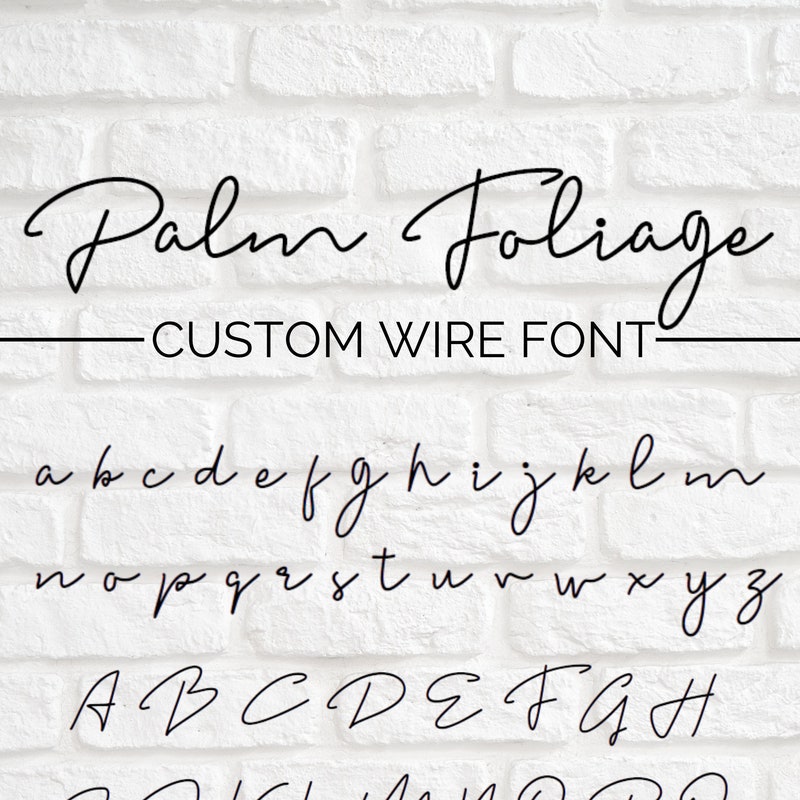 Palm Foliage
CUSTOM WIRE FONT
a b c d e f g h i j k l m
n o p q r s t u v w x y z
A B C D E F G H